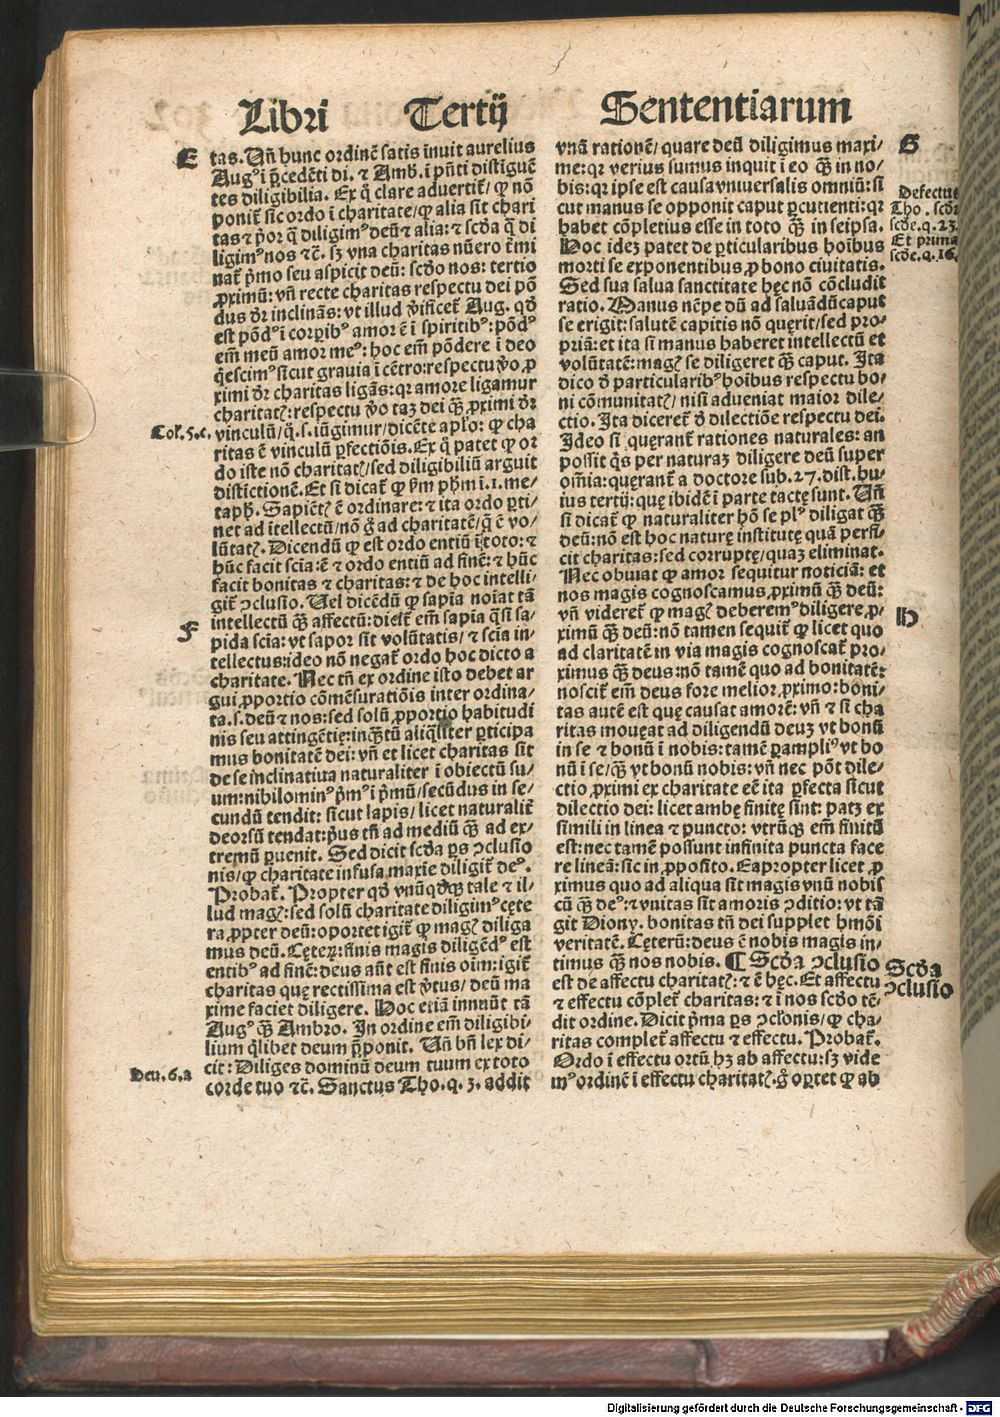 Libri Tertij Sententiarum
E
tas. Vñ hunc ordinē satis inuit aurelius
Augꝰ ī p̄cedēti di. ⁊ Amb̄. ī pn̄ti distīguē
tes diligibilia. Ex q̄ clare aduertit̄/ ꝙ nō
ponit̄ sic ordo ī charitate/ꝙ alia sit chari
tas ⁊ p̄or q̄ diligimꝰ deū ⁊ alia: ⁊ scďa q̄ di
ligimꝰ nos ⁊c̄. sꝫ vna charitas nūero t̄mi
nat̄ p̄mo seu aspicit deū: scďo nos: tertio
ꝓximū: vñ recte charitas respectu dei pō
dus dr̄ inclinās: vt illud v̄ificet̄ Aug. qď
est pōdꝰ ī corꝑibꝰ amor ē ī spiritibꝰ: pōdꝰ
em̄ meū amor meꝰ: hoc em̄ pōdere ī deo
q̄escimꝰ sicut grauia ī cētro: respectu v̄o ꝓ
ximi dr̄ charitas ligās: qꝛ amore ligamur
charitatꝭ: respectu v̄o taꝫ dei qꝫ̄ ꝓximi dr̄
Col. 5. c.
vinculū/ q̄. s. iūgimur/ dicēte apl̄o: ꝙ cha
ritas ē vinculū ꝑfectiōis. Ex q̄ patet ꝙ or
do iste nō charitatꝭ/ sed diligibiliū arguit
distīctionē. Et si dicat̄ ꝙ ẜm pħm ī. 1. me⸗
taph̄. Sapiētꝭ ē ordinare: ⁊ ita ordo ꝑti⸗
net ad ītellectū/ nō g̊ ad charitatē/ q̄ ē vo⸗
lūtatꝭ. Dicendū ꝙ est ordo entiū ī toto: ⁊
hūc facit scīa: ē ⁊ ordo entiū ad finē: ⁊ hūc
facit bonitas ⁊ charitas: ⁊ de hoc intelli⸗
git̄ ↄclusio. Vel dicēdū ꝙ sapīa noīat tā
F
intellectū qꝫ̄ affectū: dicit̄ em̄ sapīa q̄si sa⸗
pida scīa: vt sapor sit volūtatis/ ⁊ scīa in⸗
tellectus: ideo nō negat̄ ordo hoc dicto a
charitate. Nec tn̄ ex ordine isto debet ar
gui ꝓportio cōmēsuratiōis inter ordina⸗
ta. s. deū ⁊ nos: sed solū ꝓportio habitudi
nis seu attingētię: inquātū aliqliter ꝑticipa
mus bonitatē dei: vñ et licet charitas sit
de se inclinatiua naturaliter ī obiectū su⸗
um: nihilominꝰ p̄mꝰ ī p̄mū/ secūdus in se⸗
cundū tendit: sicut lapis/ licet naturalit̄
deorsū tendat: pꝰus tn̄ ad mediū qꝫ̄ ad ex⸗
tremū ꝑuenit. Sed dicit scďa ꝑs ↄclusio
nis/ ꝙ charitate infusa maxīe diligit̄ deꝰ.
Probat̄. Propter qď vnūqďqꝫ tale ⁊ il⸗
lud magꝭ: sed solū charitate diligimꝰ cęte
ra ꝓpter deū: oportet igit̄ ꝙ magꝭ diliga
mus deū. Cęterꝝ: finis magis diligēdꝰ est
entibꝰ ad finē: deus aūt est finis oīm: igit̄
charitas quę rectissima est v̄tus/ deū ma
xime faciet diligere. Hoc etiā innuūt tā
Augꝰ qꝫ̄ Ambro. In ordine em̄ diligibi⸗
lium qͥlibet deum p̄ponit. Vñ bn̄ lex di⸗
Deu. 6. a
cit: Diliges dominū deum tuum ex toto
corde tuo ⁊c̄. Sanctus Tho. q. 3. addit
G
vnā rationē/ quare deū diligimus maxi⸗
me: qꝛ verius sumus inquit ī eo qꝫ̄ in no⸗
bis: qꝛ ipse est causa vniuersalis omniū: si
Defectus
cut manus se opponit caput ꝑcutienti: qꝛ
Tho. scďe
habet cōpletius esse in toto qꝫ̄ in seipsa.
scďe. q. 23.
Hoc ideꝫ patet de ꝑticularibus hoībus
Et prima
morti se exponentibus ꝓ bono ciuitatis.
scďe. q. 16.
Sed sua salua sanctitate hęc nō cōcludit
ratio. Manus nēpe dū ad saluādū caput
se erigit: salutē capitis nō quęrit/ sed pro⸗
priā: et ita si manus haberet intellectū et
volūtatē: magꝭ se diligeret qꝫ̄ caput. Ita
dico ď particularibꝰ hoībus respectu bo⸗
ni cōmunitatꝭ/ nisi adueniat maior dile⸗
ctio. Ita diceret̄ ď dilectiōe respectu dei.
Ideo si quęrant̄ rationes naturales: an
possit q̄s per naturaꝫ diligere deū super
om̄ia: quęrant̄ a doctore sub. 27. dist. hu⸗
ius tertij: quę ibidē ī parte tactę sunt. Vñ
si dicat̄ ꝙ naturaliter hō se plꝰ diligat qꝫ̄
deū: nō est hoc naturę institutę quā perfi⸗
cit charitas: sed corruptę/ quaꝫ eliminat.
Nec obuiat ꝙ amor sequitur noticiā: et
nos magis cognoscamus ꝓximū qꝫ̄ deū:
H
vñ videret̄ ꝙ magꝭ deberemꝰ diligere ꝓ⸗
ximū qꝫ̄ deū: nō tamen sequit̄ ꝙ licet quo
ad claritatē in via magis cognoscat̄ pro⸗
ximus qꝫ̄ deus: nō tamē quo ad bonitatē:
noscit̄ em̄ deus fore melior ꝓximo: boni⸗
tas autē est quę causat amorē: vñ ⁊ si cha
ritas moueat ad diligendū deuꝫ vt bonū
in se ⁊ bonū ī nobis: tamē ꝑampliꝰ vt bo
nū ī se/ qꝫ̄ vt bonū nobis: vñ nec pōt dile⸗
ctio ꝓximi ex charitate eē ita ꝑfecta sicut
dilectio dei: licet ambę finitę sint: patꝫ ex
simili in linea ⁊ puncto: vtrūqꝫ em̄ finitū
est: nec tamē possunt infinita puncta face
re lineā: sic in ꝓposito. Eapropter licet ꝓ
ximus quo ad aliqua sit magis vnū nobis
cū qꝫ̄ deꝰ: ⁊ vnitas sit amoris ↄditio: vt tā
git Diony. bonitas tn̄ dei supplet hmōi
veritatē. Cęterū: deus ē nobis magis in⸗
timus qꝫ̄ nos nobis. ¶ Scďa ↄclusio
Scďa
ↄclusio
est de affectu charitatꝭ: ⁊ ē hęc. Et affectu
⁊ effectu cōplet̄ charitas: ⁊ ī nos scďo tē⸗
dit ordine. Dicit p̄ma ꝑs ↄclōnis/ ꝙ cha⸗
ritas complet̄ affectu ⁊ effectu. Probat̄.
Ordo ī effectu ortū hꝫ ab affectu: sꝫ vide
mꝰ ordinē ī effectu charitatꝭ. g̊ oꝑtet ꝙ ab
Digitalisierung gefördert durch die Deutsche Forschungsgemeinschaft - DFG